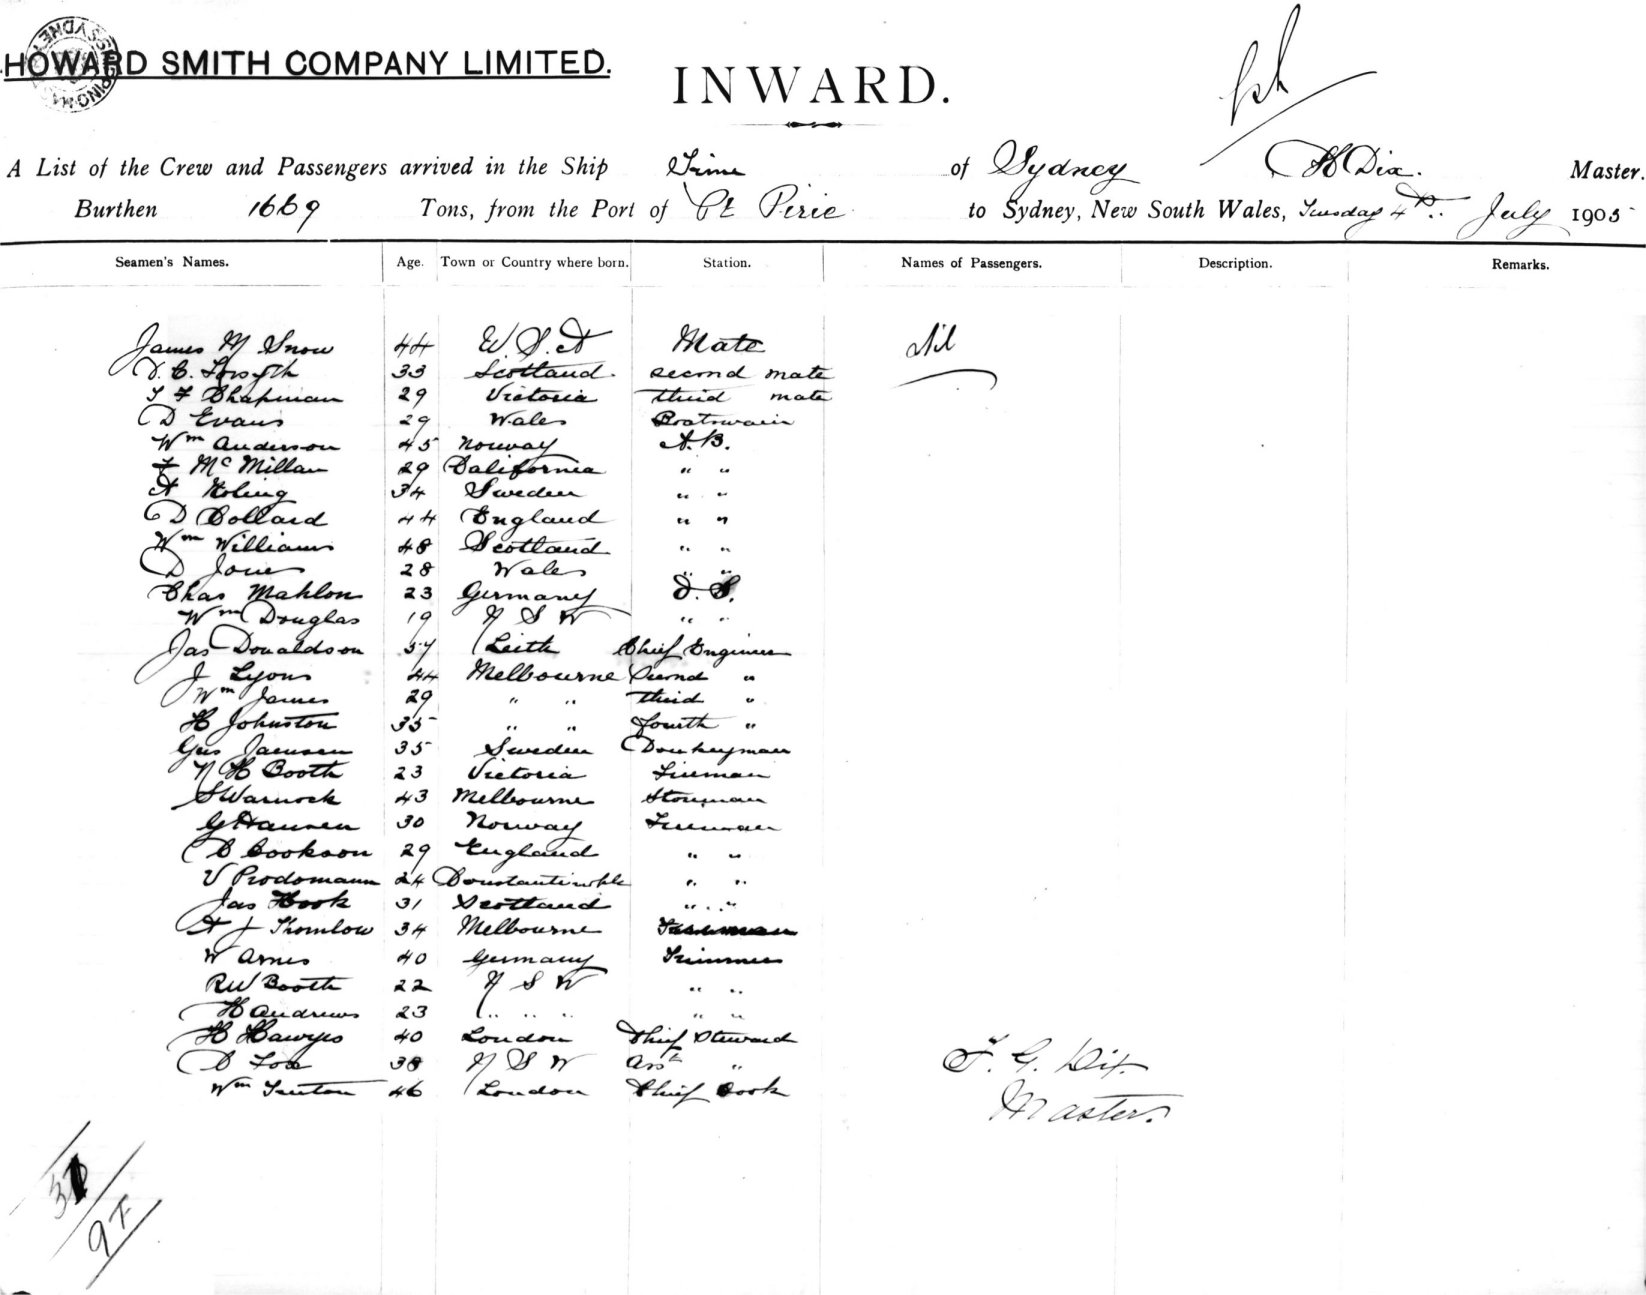 HOWARD SMITH COMPANY LIMITED.
INWARD.
A List of the Crew and Passengers arrived in the Ship Time of Sydney H Dix. Master.
Burthen 1669 Tons, from the Port of Pt Pirie to Sydney, New South Wales, Tuesday 4th July 1905
Seamen's Names. Age. Town or Country where born. Station. Names of Passengers. Description. Remarks.
James M Snow 44 U.S.A Mate Nil
D. C. Forsyth 33 Scotland. second mate
T F Chapman 29 Victoria third mate
D Evans 29 Wales Boatswain
Wm Anderson 45 Norway A.B.
F McMillan 29 California " "
A 34 Sweden " "
D Collard 44 England " "
Wm Williams 48 Scotland " "
D Jones 28 Wales " "
Chas Mahlon 23 Germany O.S.
Wm Douglas 19 N S W " "
Jas Donaldson 57 Leith Chief Engineer
J Lyons 44 Melbourne Second "
Wm James 29 " " third "
H Johnston 35 " " fourth "
Gus 35 Sweden Donkeyman
N H Booth 23 Victoria Fireman
S Warnock 43 Melbourne
G Hansen 30 Norway Fireman
C Cookson 29 England " "
V Prodomann 24 " "
Jas Hook 31 Scotland " "
A J Thomlow 34 Melbourne Fireman
W Ames 40 Germany Trimmer
R W Booth 22 N S W " "
H Andrews 23 " " " " "
H Hawyes 40 London Chief Steward
C Fox 38 N S W Asst "
Wm Fenton 46 London Chief Cook
F. G. Dix.
Master.